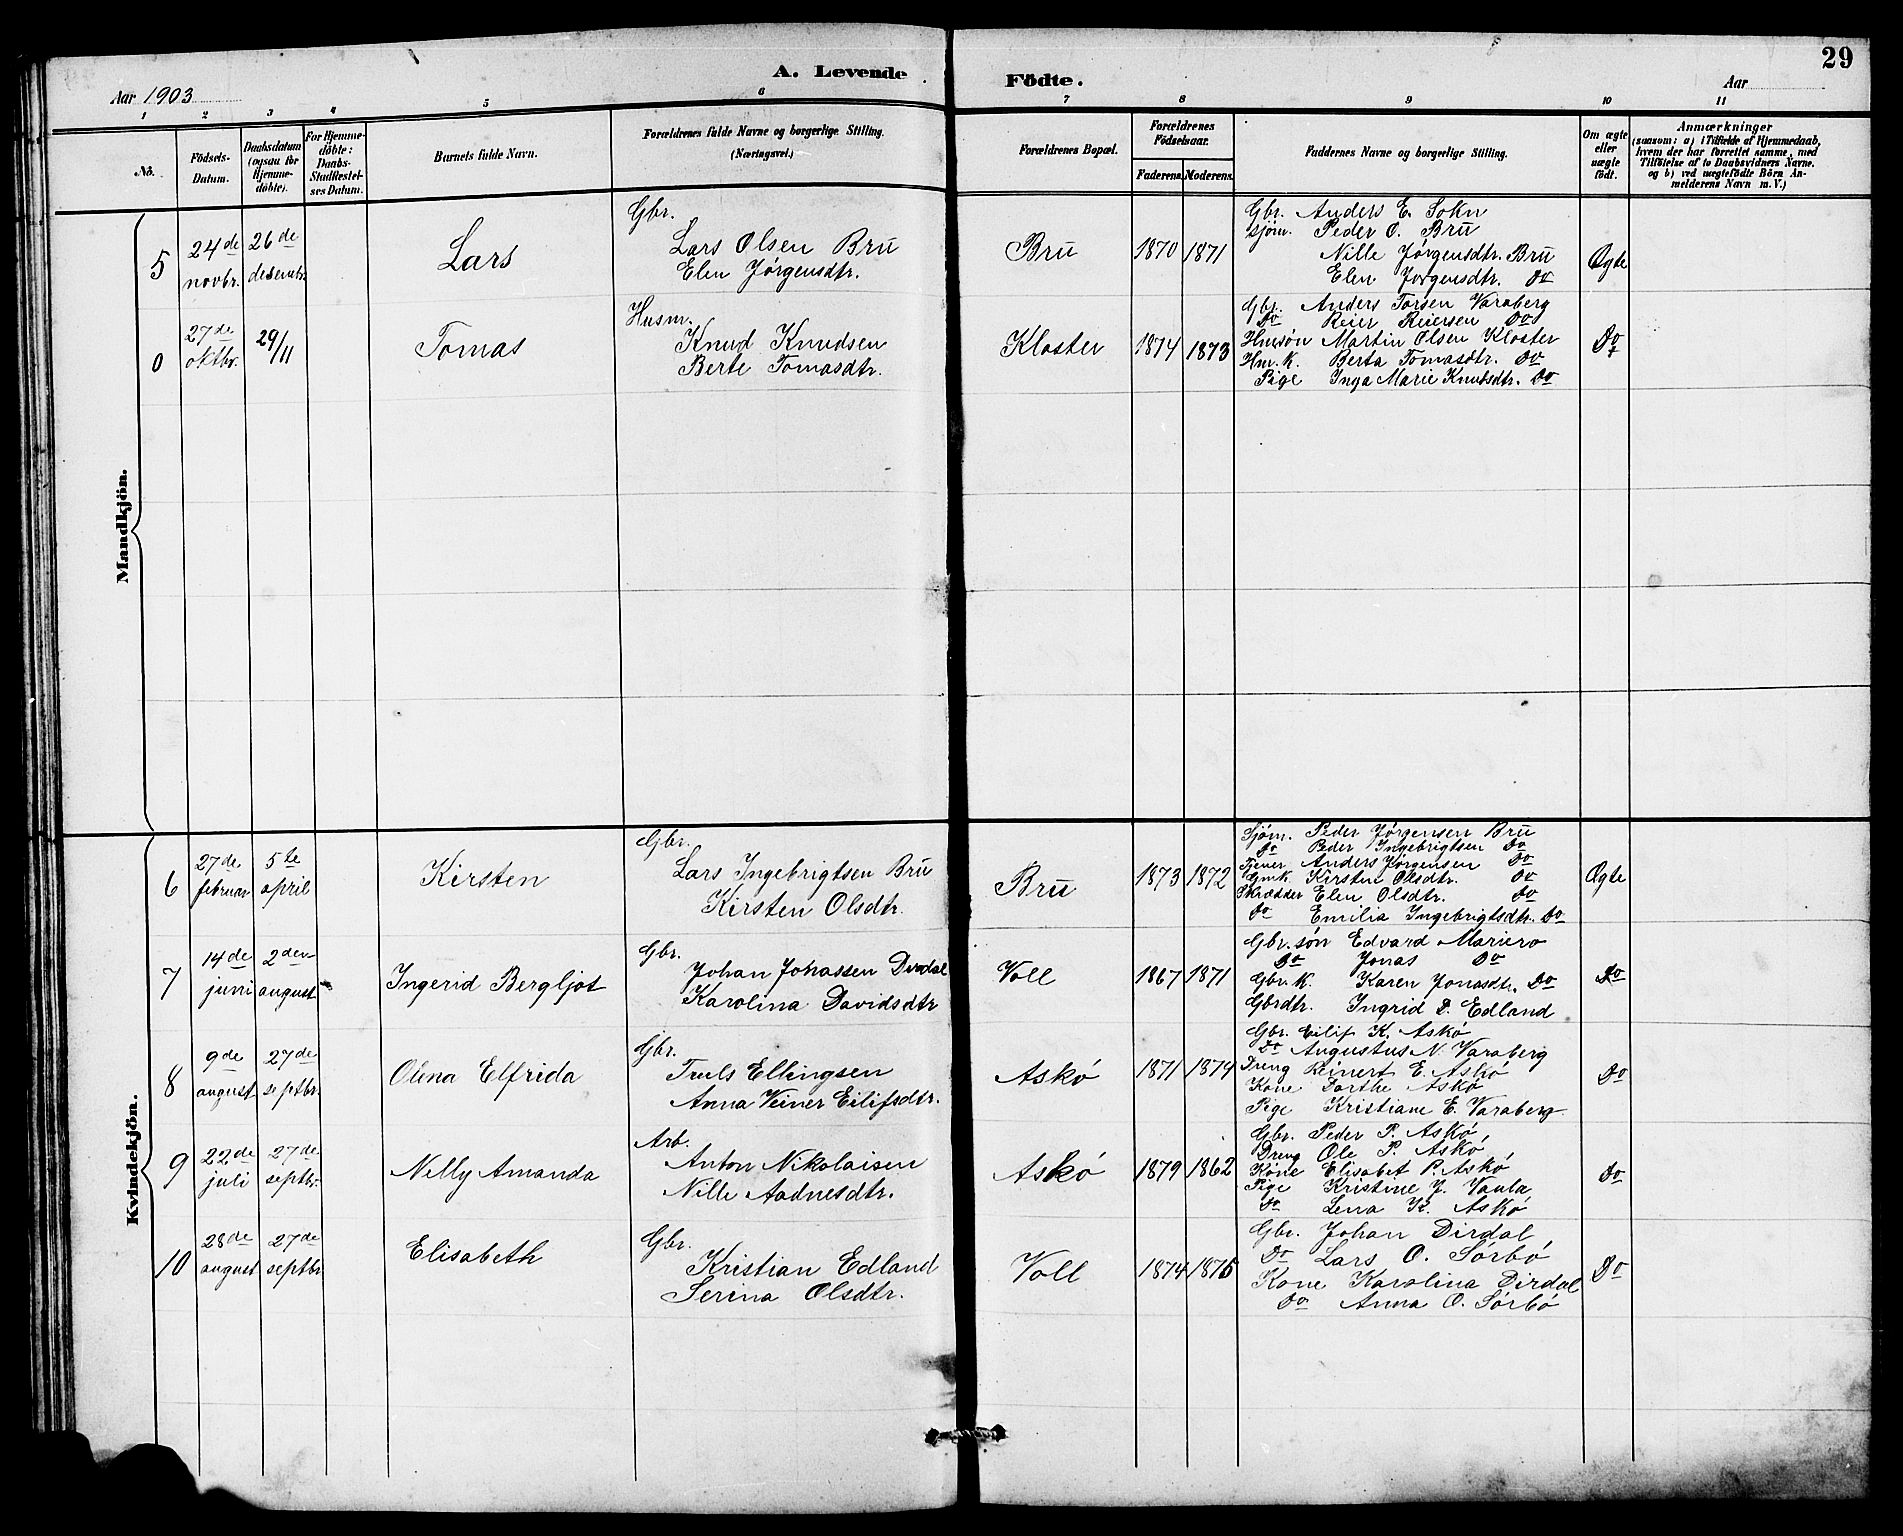 A. Levende Födte.
29
Aar 1903
Aar
1 2 3 4 5 6 7 8 9 10 11
No.
Födsels-Datum.
Daabsdatum (ogsaa for Hjemme-döbte).
For Hjemme-döbte: Daabs-Stadfæstel-ses Datum.
Barnets fulde Navn.
Forældrenes fulde Navne og borgerlige Stilling. (Næringsvei.)
Forældrenes Bopæl.
Forældrenes Födselsaar.
Faderens. Moderens.
Faddernes Navne og borgerlige Stilling.
Om ægte eller uægte födt.
Anmærkninger
(saasom: a) i Tilfælde af Hjemmedaab,
hvem der har forrettet samme, med
Tilföielse af to Daabsvidners Navne.
og b) ved uægtefödte Börn An-
melderens Navn m. V.)
Mandkjön.
5
24de novbr.
26de desembr.
Lars
Gbr.
Lars Olsen Bru
Elen Jørgensdtr.
Bru
1870 1871
Gbr. Anders E. Sokn
Sjøm. Peder O. Bru
Nille Jørgensdtr. Bru
Elen Jørgensdtr. Do
Ægte
0
27de oktbr.
29/11
Tomas
Husm.
Knud Knudsen
Berte Tomasdtr.
Kloster
1874 1873
Gbr. Anders Torsen Varaberg
Do Reier Reiersen Do
Hmsøn Martin Olsen Kloster
Hm. K. Berta Tomasdtr. Do
Pige Inga Marie Knutsdtr. Do
Do
Kvindekjön.
6
27de februar
5te april
Kirsten
Gbr.
Lars Ingebrigtsen Bru
Kirsten Olsdtr.
Bru
1873 1872
Sjøm. Peder Jørgensen Bru
Do Peder Ingebrigtsen Do
Tjener Anders Jørgensen Do
Gmk. Kirsten Olsdtr. Do
Skrædder Elen Olsdtr. Do
Do Emilia Ingebrigtsdtr. Do
Ægte
7
14de juni
2den august
Ingerid Bergljot
Gbr.
Johan Johassen Dirdal
Karolina Davidsdtr
Voll
1867 1871
Gbr. søn Edvard Mariero
Do Jonas Do
Gbr. K. Karen Jonasdtr. Do
Gbrdtr. Ingrid D. Edland
Do
8
9de august
27de septbr.
Olena Elfrida
Gbr.
Truls Ellingsen
Anna Veiner Eilifsdtr.
Askø
1871 1874
Gbr. Eilif K. Askø
Do Augustus N. Varaberg
Dreng Reinert E. Askø
Kone Dorthe Askø
Pige Kristiane E. Varaberg
Do
9
22de juli
27de septbr.
Nelly Amanda
Arb.
Anton Nikolaisen
Nille Aadnesdtr.
Askø
1879 1862
Gbr. Peder P. Askø
Dreng Ole P. Askø
Kone Elisabet P. Askø
Pige Kristine J. Vaula
Do Lena K. Askø
Do
10
28de august
27de septbr
Elisabeth
Gbr.
Kristian Edland
Serina Olsdtr.
Voll
1874 1875
Gbr. Johan Dirdal
Do Lars O. Sørbø
Kone Karolina Dirdal
Do Anna O. Sørbø
Do